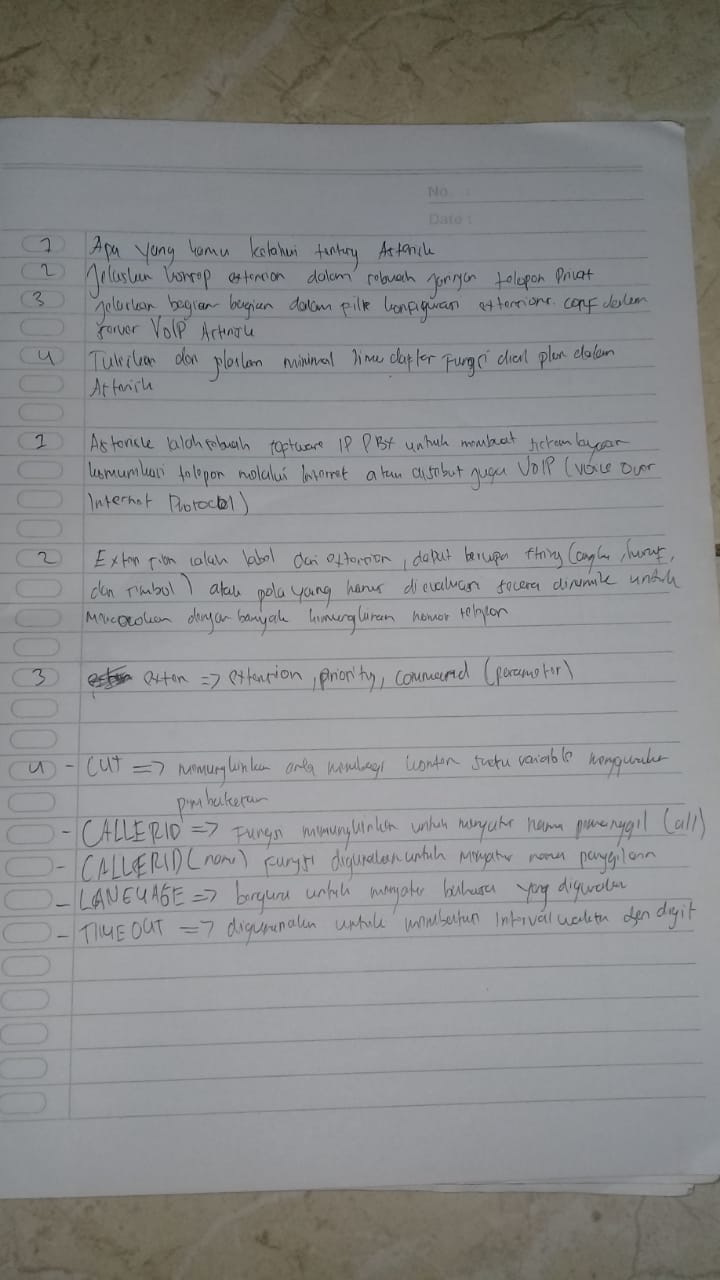 No :
Date :
1 Apa yang kamu ketahui tentang Asterisk
2 Jelaskan konsep extension dalam sebuah jaringan telepon Privat
3 Jelaskan bagian bagian dalam file konfigurasi extensions. conf dalam
server VoIP Asterisk
4 Tuliskan dan jelaskan minimal lima daftar Fungsi dial plan dalam
Asterisk
1 Asterisk ialah sebuah software IP PBX untuk membuat sistem layanan
komunikasi telepon melalui Internet atau disebut juga VOIP (voice over
Internet Protocol)
2 Extension ialah label dari extension, dapat berupa string (angka, huruf,
dan simbol) atau pola yang harus di evaluasi secara dinamik untuk
mencocokan dengan banyak kemungkinan nomor telepon
3 exten => extention, priority, command (parameter)
4 - CUT => memungkinkan anda membagi konten suatu variable menggunakan
pembatas
- CALLERID => Fungsi memungkinkan untuk mengatur nama pemanggil (all)
- CALLERID (name) Fungsi digunakan untuk mengatur nama panggilan
- LANGUAGE => berguna untuk mengatur bahasa yang digunakan
- TIMEOUT => digunakan untuk Interval waktu dan digit